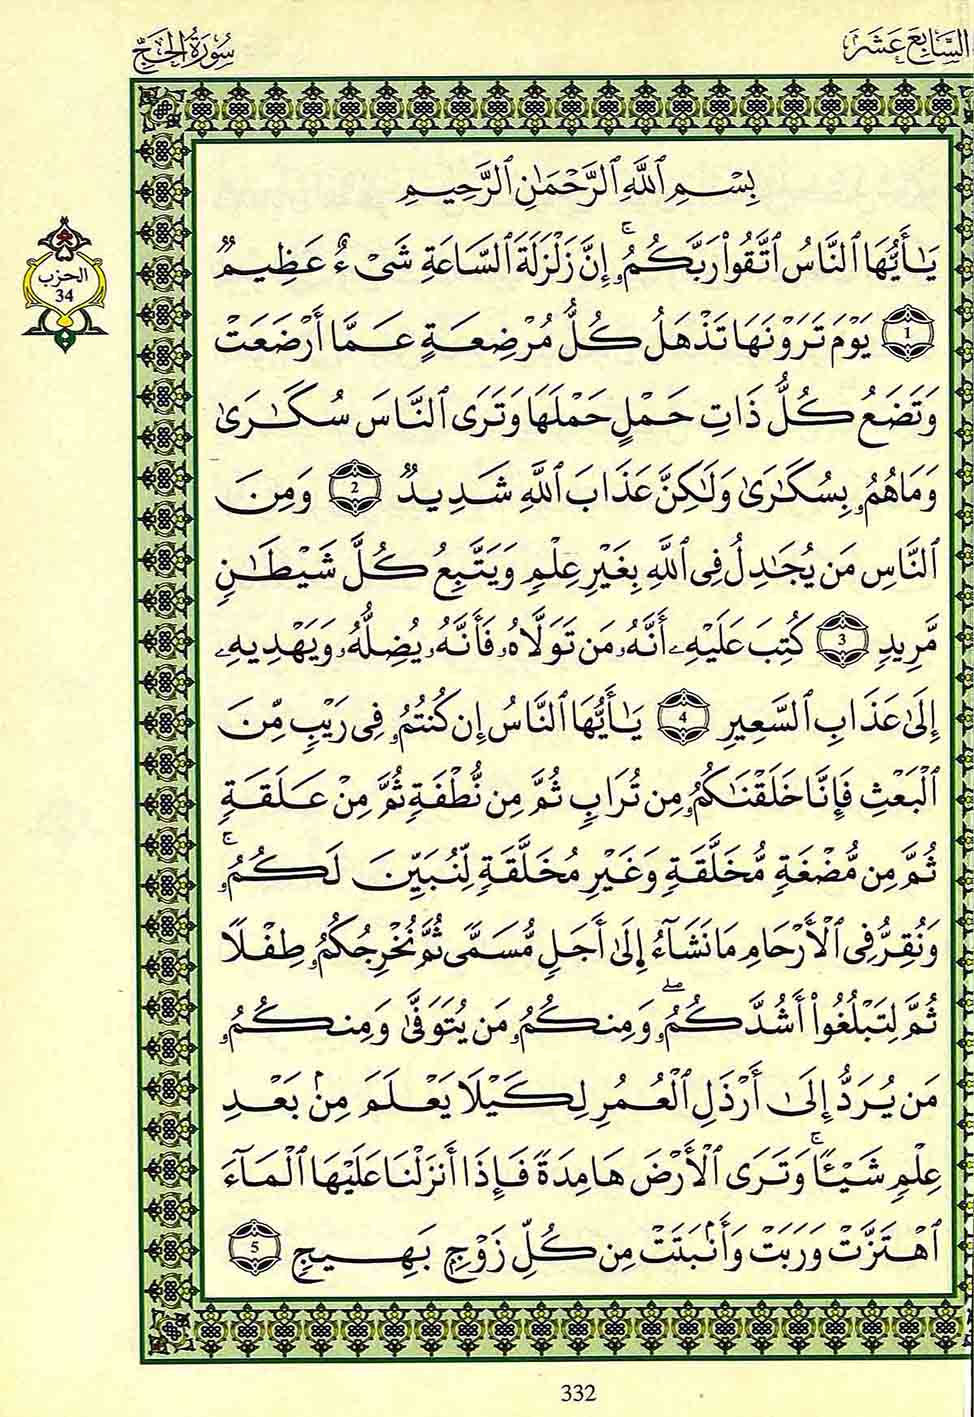 السَّابِعَ عَشَرَ
سُورَةُ الْحَجِّ
بِسْمِ ٱللَّهِ ٱلرَّحْمَٰنِ ٱلرَّحِيمِ
يَٰٓأَيُّهَا ٱلنَّاسُ ٱتَّقُوا۟ رَبَّكُمُۥٓ ۚ إِنَّ زَلْزَلَةَ ٱلسَّاعَةِ شَىْءٌ عَظِيمٌ
1 يَوْمَ تَرَوْنَهَا تَذْهَلُ كُلُّ مُرْضِعَةٍ عَمَّآ أَرْضَعَتْ
وَتَضَعُ كُلُّ ذَاتِ حَمْلٍ حَمْلَهَا وَتَرَى ٱلنَّاسَ سُكَٰرَىٰ
وَمَا هُمُۥ بِسُكَٰرَىٰ وَلَٰكِنَّ عَذَابَ ٱللَّهِ شَدِيدٌ 2 وَمِنَ
ٱلنَّاسِ مَن يُجَٰدِلُ فِى ٱللَّهِ بِغَيْرِ عِلْمٍ وَيَتَّبِعُ كُلَّ شَيْطَٰنٍ
مَّرِيدٍ 3 كُتِبَ عَلَيْهِۦ أَنَّهُۥ مَن تَوَلَّاهُۥ فَأَنَّهُۥ يُضِلُّهُۥ وَيَهْدِيهِۦٓ
إِلَىٰ عَذَابِ ٱلسَّعِيرِ 4 يَٰٓأَيُّهَا ٱلنَّاسُ إِن كُنتُمُۥ فِى رَيْبٍ مِّنَ
ٱلْبَعْثِ فَإِنَّا خَلَقْنَٰكُمُۥ مِن تُرَابٍ ثُمَّ مِن نُّطْفَةٍ ثُمَّ مِنْ عَلَقَةٍ
ثُمَّ مِن مُّضْغَةٍ مُّخَلَّقَةٍ وَغَيْرِ مُخَلَّقَةٍ لِّنُبَيِّنَ لَكُمُۥ ۚ
وَنُقِرُّ فِى ٱلْأَرْحَامِ مَا نَشَآءُ إِلَىٰٓ أَجَلٍ مُّسَمًّى ثُمَّ نُخْرِجُكُمُۥ طِفْلًا
ثُمَّ لِتَبْلُغُوٓا۟ أَشُدَّكُمُۥ ۖ وَمِنكُمُۥ مَن يُتَوَفَّىٰ وَمِنكُمُۥ
مَن يُرَدُّ إِلَىٰٓ أَرْذَلِ ٱلْعُمُرِ لِكَيْلَا يَعْلَمَ مِنۢ بَعْدِ
عِلْمٍ شَيْـًٔا ۚ وَتَرَى ٱلْأَرْضَ هَامِدَةً فَإِذَآ أَنزَلْنَا عَلَيْهَا ٱلْمَآءَ
ٱهْتَزَّتْ وَرَبَتْ وَأَنۢبَتَتْ مِن كُلِّ زَوْجٍ بَهِيجٍ 5
الحزب
34
332